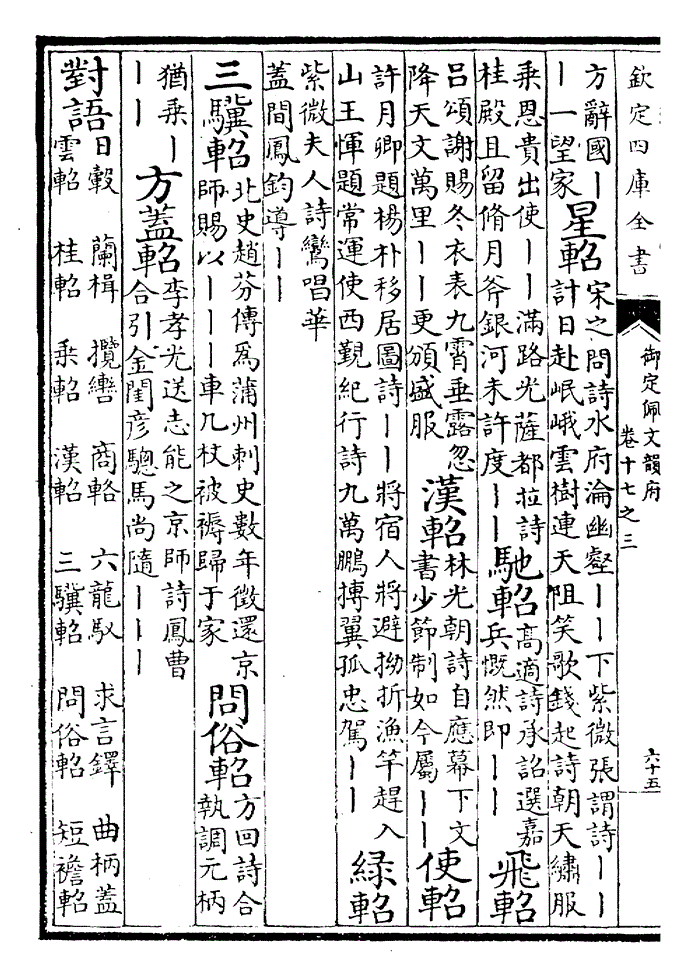 欽定四庫全書
御定佩文韻府
卷十七之三
六十五
方辭國丨
丨一望家
星軺
宋之問詩水府淪幽壑丨丨下紫微張謂詩丨丨
計日赴岷峨雲樹連天阻笑歌錢起詩朝天繡服
乘恩貴出使丨丨滿路光薩都拉詩
桂殿且留脩月斧銀河未許度丨丨
馳軺
高適詩承詔選嘉
兵慨然即丨丨
飛軺
呂頌謝賜冬衣表九霄垂露忽
降天文萬里丨丨更頒盛服
漢軺
林光朝詩自應幕下文
書少節制如今屬丨丨
使軺
許月卿題楊朴移居圖詩丨丨將宿人將避拗折漁竿趕入
山王惲題常運使西覲紀行詩九萬鵬摶翼孤忠駕丨丨
緑軺
紫微夫人詩鸞唱華
蓋間鳳鈞導丨丨
三驥軺
北史趙芬傳為蒲州刺史數年徵還京
師賜以丨丨丨車几杖被褥歸于家
問俗軺
方回詩合
執調元柄
猶乘丨
丨丨
方蓋軺
李孝光送志能之京師詩鳳曹
合引金閨彥驄馬尚隨丨丨丨
對語
日轂 蘭楫 攬轡 商輅 六龍馭 求言鐸 曲柄蓋
雲軺 桂軺 乘軺 漢軺 三驥軺 問俗軺 短襜軺